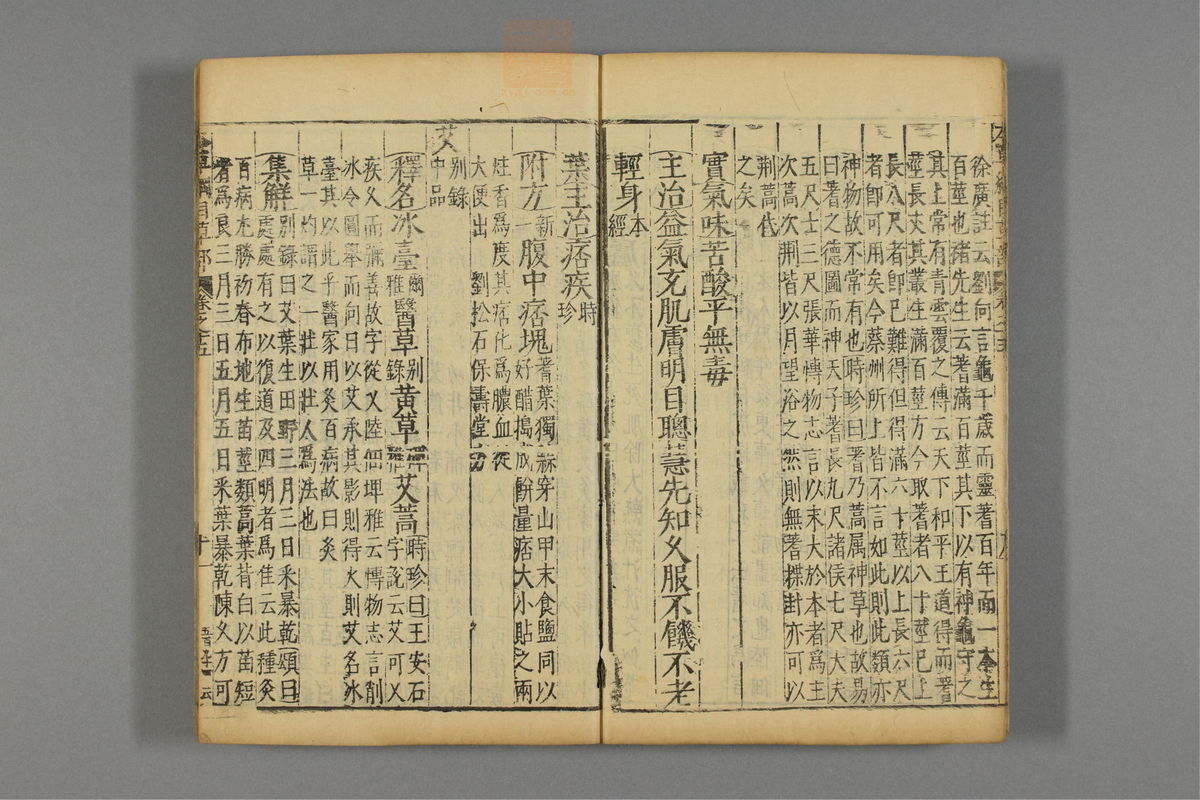 徐廣註云劉向言龜千歲而靈蓍百年而一本生
百莖也褚先生云蓍滿百莖其下以有神龜守之
其上常有青雲覆之傳云天下和平王道得而蓍
莖長丈其叢生滿百莖方今取蓍者八十莖已上
長八尺者卽已難得但得滿六十莖以上長六尺
者卽可用矣今蔡州所上皆不言如此則此類亦
神物故不常有也時珍曰蓍乃蒿属神草也故易
曰蓍之德圖而神天子蓍長九尺諸侯七尺大夫
五尺士三尺張華博物志言以末大於本者爲主
次蒿次荆皆以月望浴之然則無蓍揲卦亦可以
荆蒿代
之矣
實氣味苦酸平無毒
主治益氣充肌膚明目聰慧先知久服不饑不老
輕身本經
葉主治痞疾時珍
附方新一腹中痞塊蓍葉獨蒜穿山甲末食鹽同以
好醋搗成餅量痞大小貼之兩
炷香爲度其痞化爲膿血從
大便出劉松石保壽堂方
艾
别錄
中品
釋名冰臺爾雅醫草别錄黄草埤雅艾蒿時珍曰王安石
字說云艾可乂
疾久而彌善故字從乂陸佃埤雅云博物志言削
冰令圓舉而向日以艾承其影則得火則艾名冰
臺其以此乎醫家用灸百病故曰灸
草一灼謂之一壯以壯人爲法也
集觧别錄曰艾葉生田野三月三日采暴乾頌曰
處處有之以復道及四明者爲佳云此種灸
百病尤勝初春布地生苗莖類蒿葉背白以苗短
者爲良三月三日五月五日采葉暴乾陳久方可